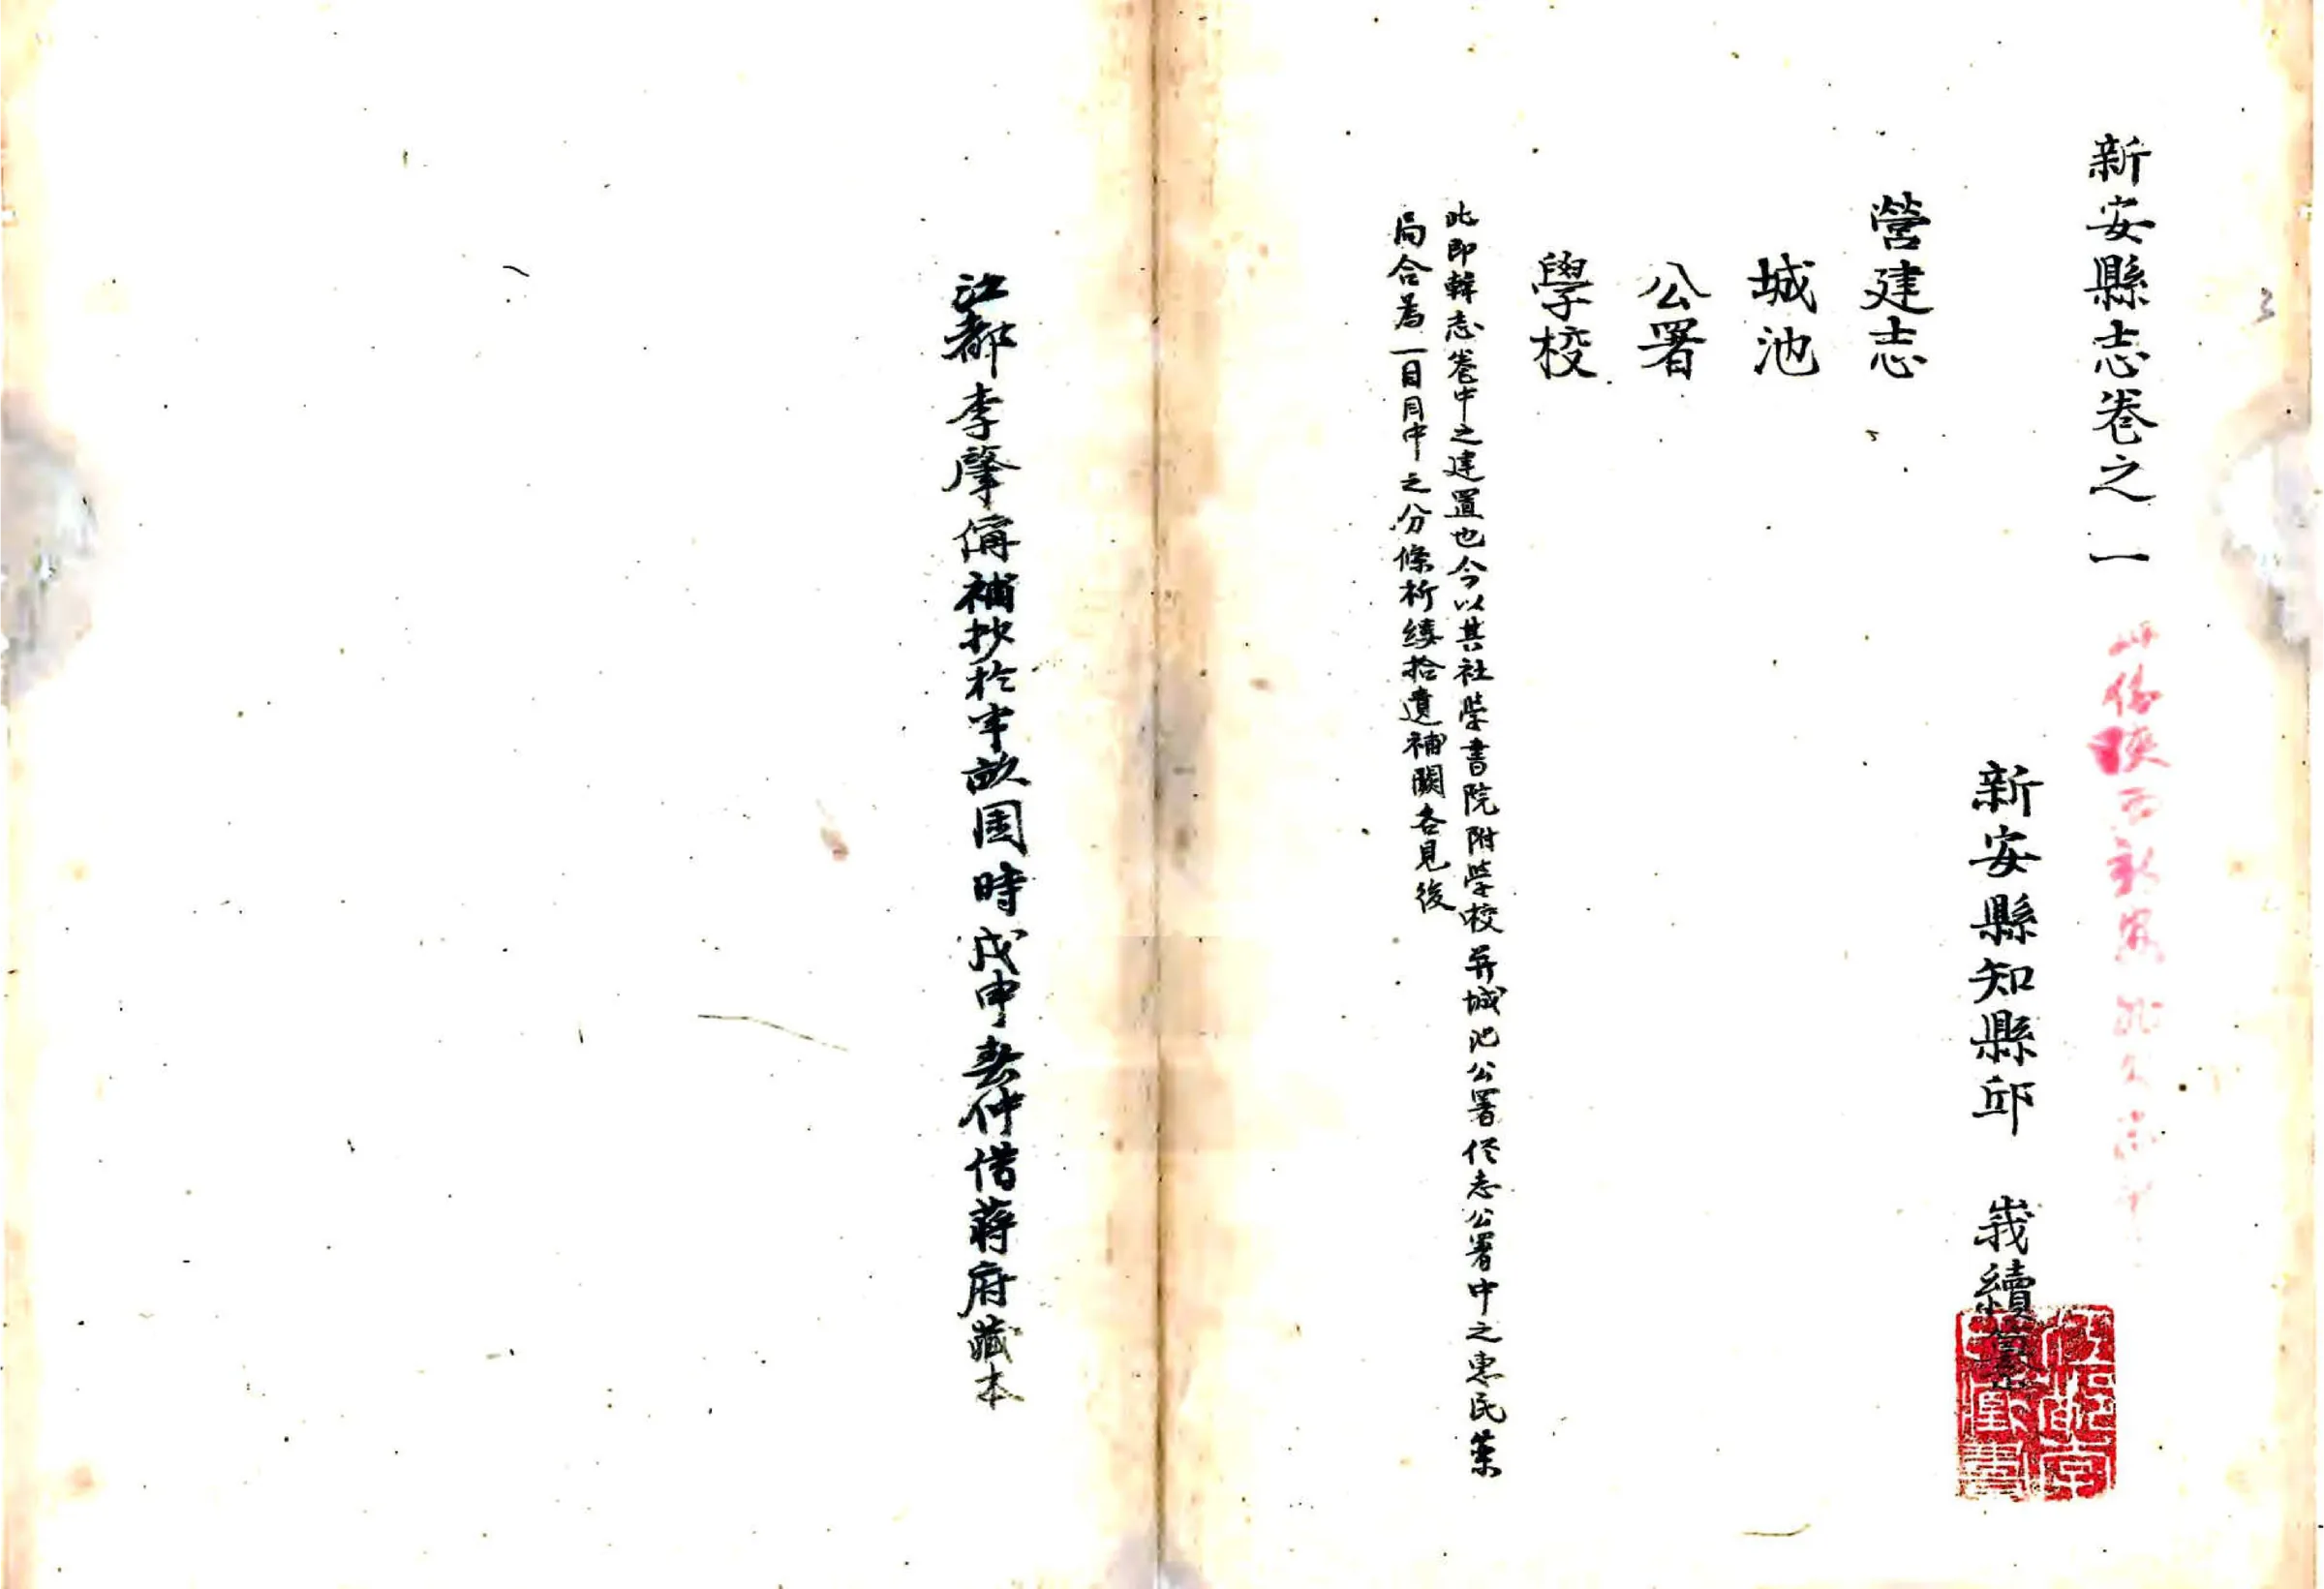 新安縣志卷之一
新安縣知縣邱 峩續纂
營建志
城池
公署
學校
此即韓志卷中之建置也今以其社學書院附學校并城池公署從志公署中之惠民藥
局合為一目目中之分條析縷拾遺補闕各見後
江都李肇偁補抄於半畝園時戊申春仲借蔣府藏本